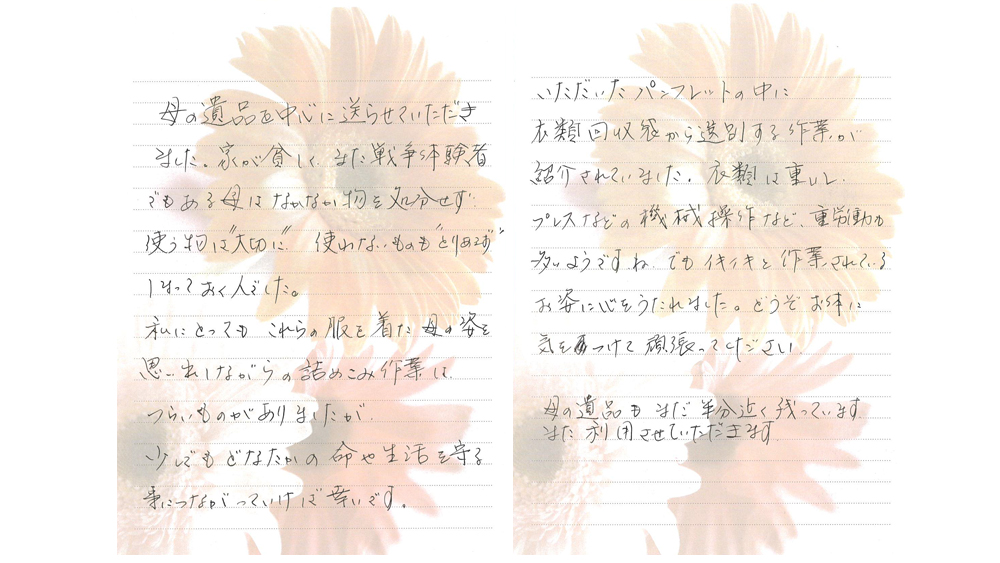 母の遺品を中心に送らせていただき
ました。家が貧しく、また戦争体験者
でもある母はなかなか物を処分せず
使う物は"大切に" 使わないものも"とりあえず"
しまっておく人でした。
私にとっても これらの服を着た母の姿を
思い出しながらの詰めこみ作業は、
つらいものがありましたが、
少しでもどなたかの命や生活を守る
事につながっていけば幸いです。
いただいたパンフレットの中に
衣類回収袋から選別する作業が
紹介されていました。衣類は重いし、
プレスなどの機械操作など、重労働も
多いようですね。でもイキイキと作業されている
お姿に心をうたれました。どうぞお体に
気をつけて頑張ってください。
母の遺品もまだ半分近く残っています。
また利用させていただきます